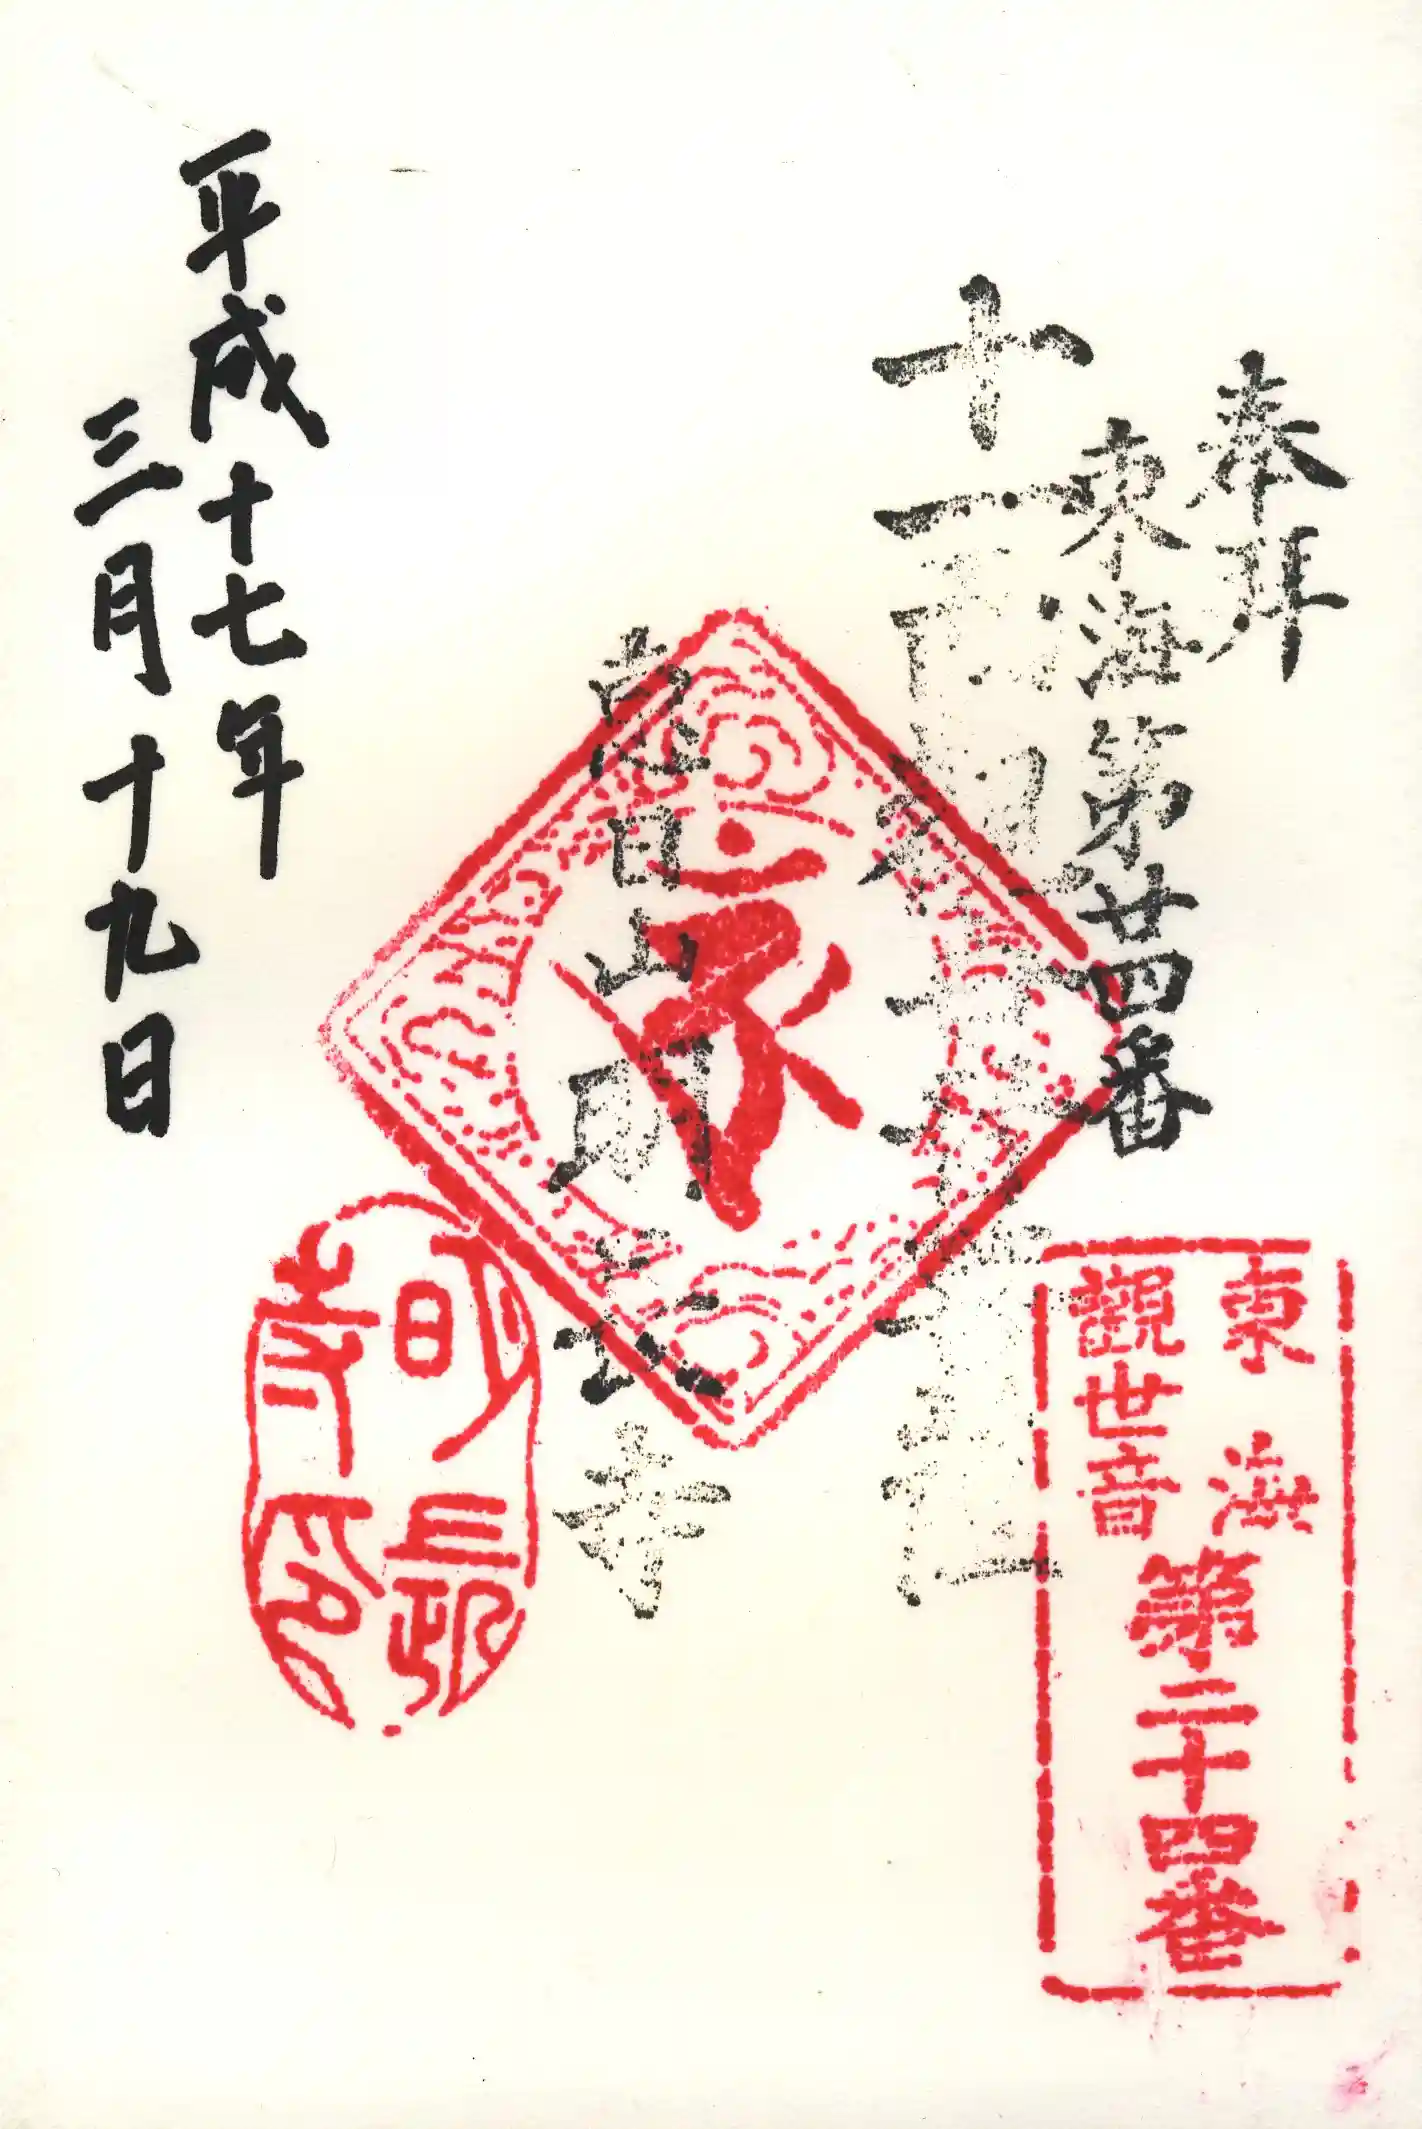 奉拝
東海第廿四番
十一面観世音菩薩
山明長寺
東海
觀世音
第二十四番
明長
寺印
平成十七年
三月十九日